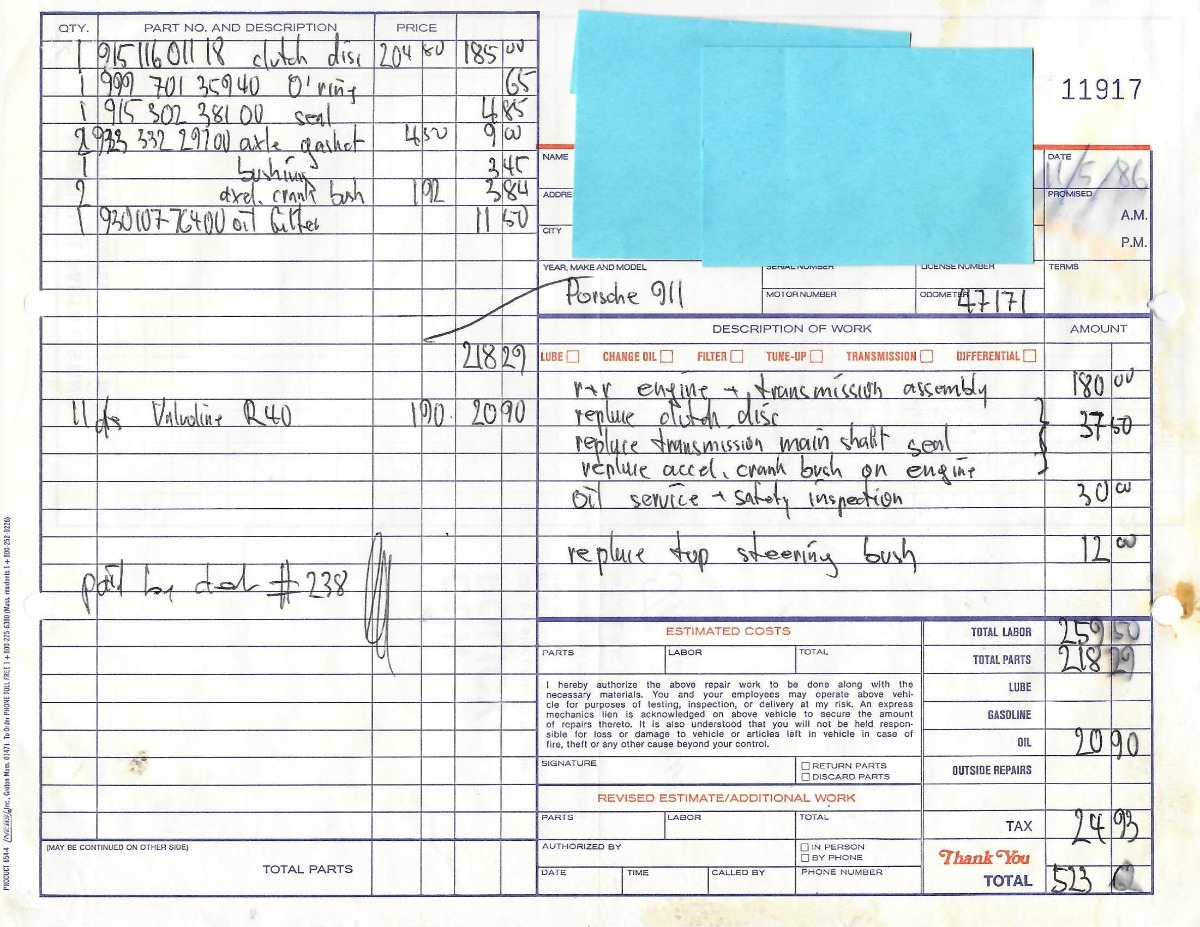 QTY. PART NO. AND DESCRIPTION PRICE
1 915 116 011 18 clutch disc 204 80 185 00
1 999 701 359 40 O'ring 65
1 915 302 381 00 seal 4 85
2 923 332 297 00 axle gasket 4 50 9 00
1 bushing 3 45
2 axel. crank bush 1 92 3 84
1 930 107 764 00 oil filter 11 50
218 29
11 qts Valvoline R 40 1 90 20 90
paid by #238
(MAY BE CONTINUED ON OTHER SIDE)
TOTAL PARTS
11917
NAME
DATE 11/5/86
ADDRE
PROMISED
A.M.
P.M.
CITY
YEAR, MAKE AND MODEL SERIAL NUMBER LICENSE NUMBER TERMS
Porsche 911
MOTOR NUMBER ODOMETER 47171
DESCRIPTION OF WORK AMOUNT
LUBE CHANGE OIL FILTER TUNE-UP TRANSMISSION DIFFERENTIAL
r+r engine + transmission assembly 180 00
replace clutch disc
replace transmission main shaft seal 37 50
replace accel. crank bush on engine
oil service + safety inspection 30 00
replace top steering bush 12 00
ESTIMATED COSTS
PARTS LABOR TOTAL
I hereby authorize the above repair work to be done along with the
necessary materials. You and your employees may operate above vehi-
cle for purposes of testing, inspection, or delivery at my risk. An express
mechanics lien is acknowledged on above vehicle to secure the amount
of repairs thereto. It is also understood that you will not be held respon-
sible for loss or damage to vehicle or articles left in vehicle in case of
fire, theft or any other cause beyond your control.
SIGNATURE
RETURN PARTS
DISCARD PARTS
REVISED ESTIMATE/ADDITIONAL WORK
PARTS LABOR TOTAL
AUTHORIZED BY
IN PERSON
BY PHONE
DATE TIME CALLED BY PHONE NUMBER
TOTAL LABOR 259 50
TOTAL PARTS 218 29
LUBE
GASOLINE
OIL 20 90
OUTSIDE REPAIRS
TAX 24 93
Thank You
TOTAL 523
PRODUCT 654-4 Inc., Groton, Mass. 01471. To Order PHONE TOLL FREE 1 + 800-225-6380 (Mass. residents 1 + 800-252-9226)